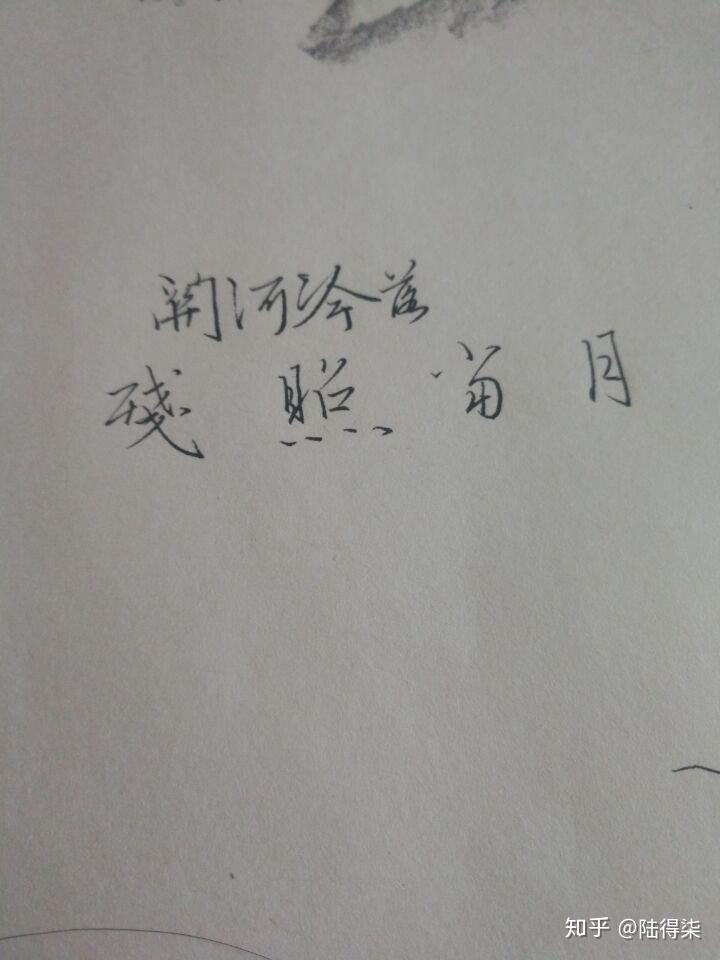 関河冷落
残照當月
知乎 @陆得柒